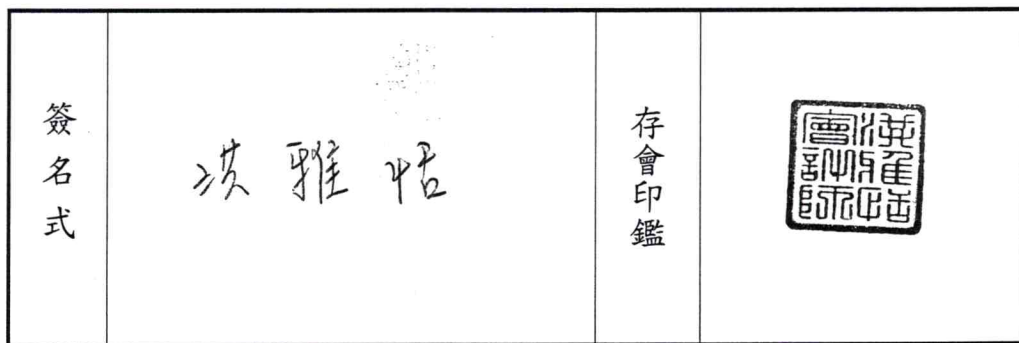 簽名式
洪雅恬
存會印鑑
洪雅恬
會計師